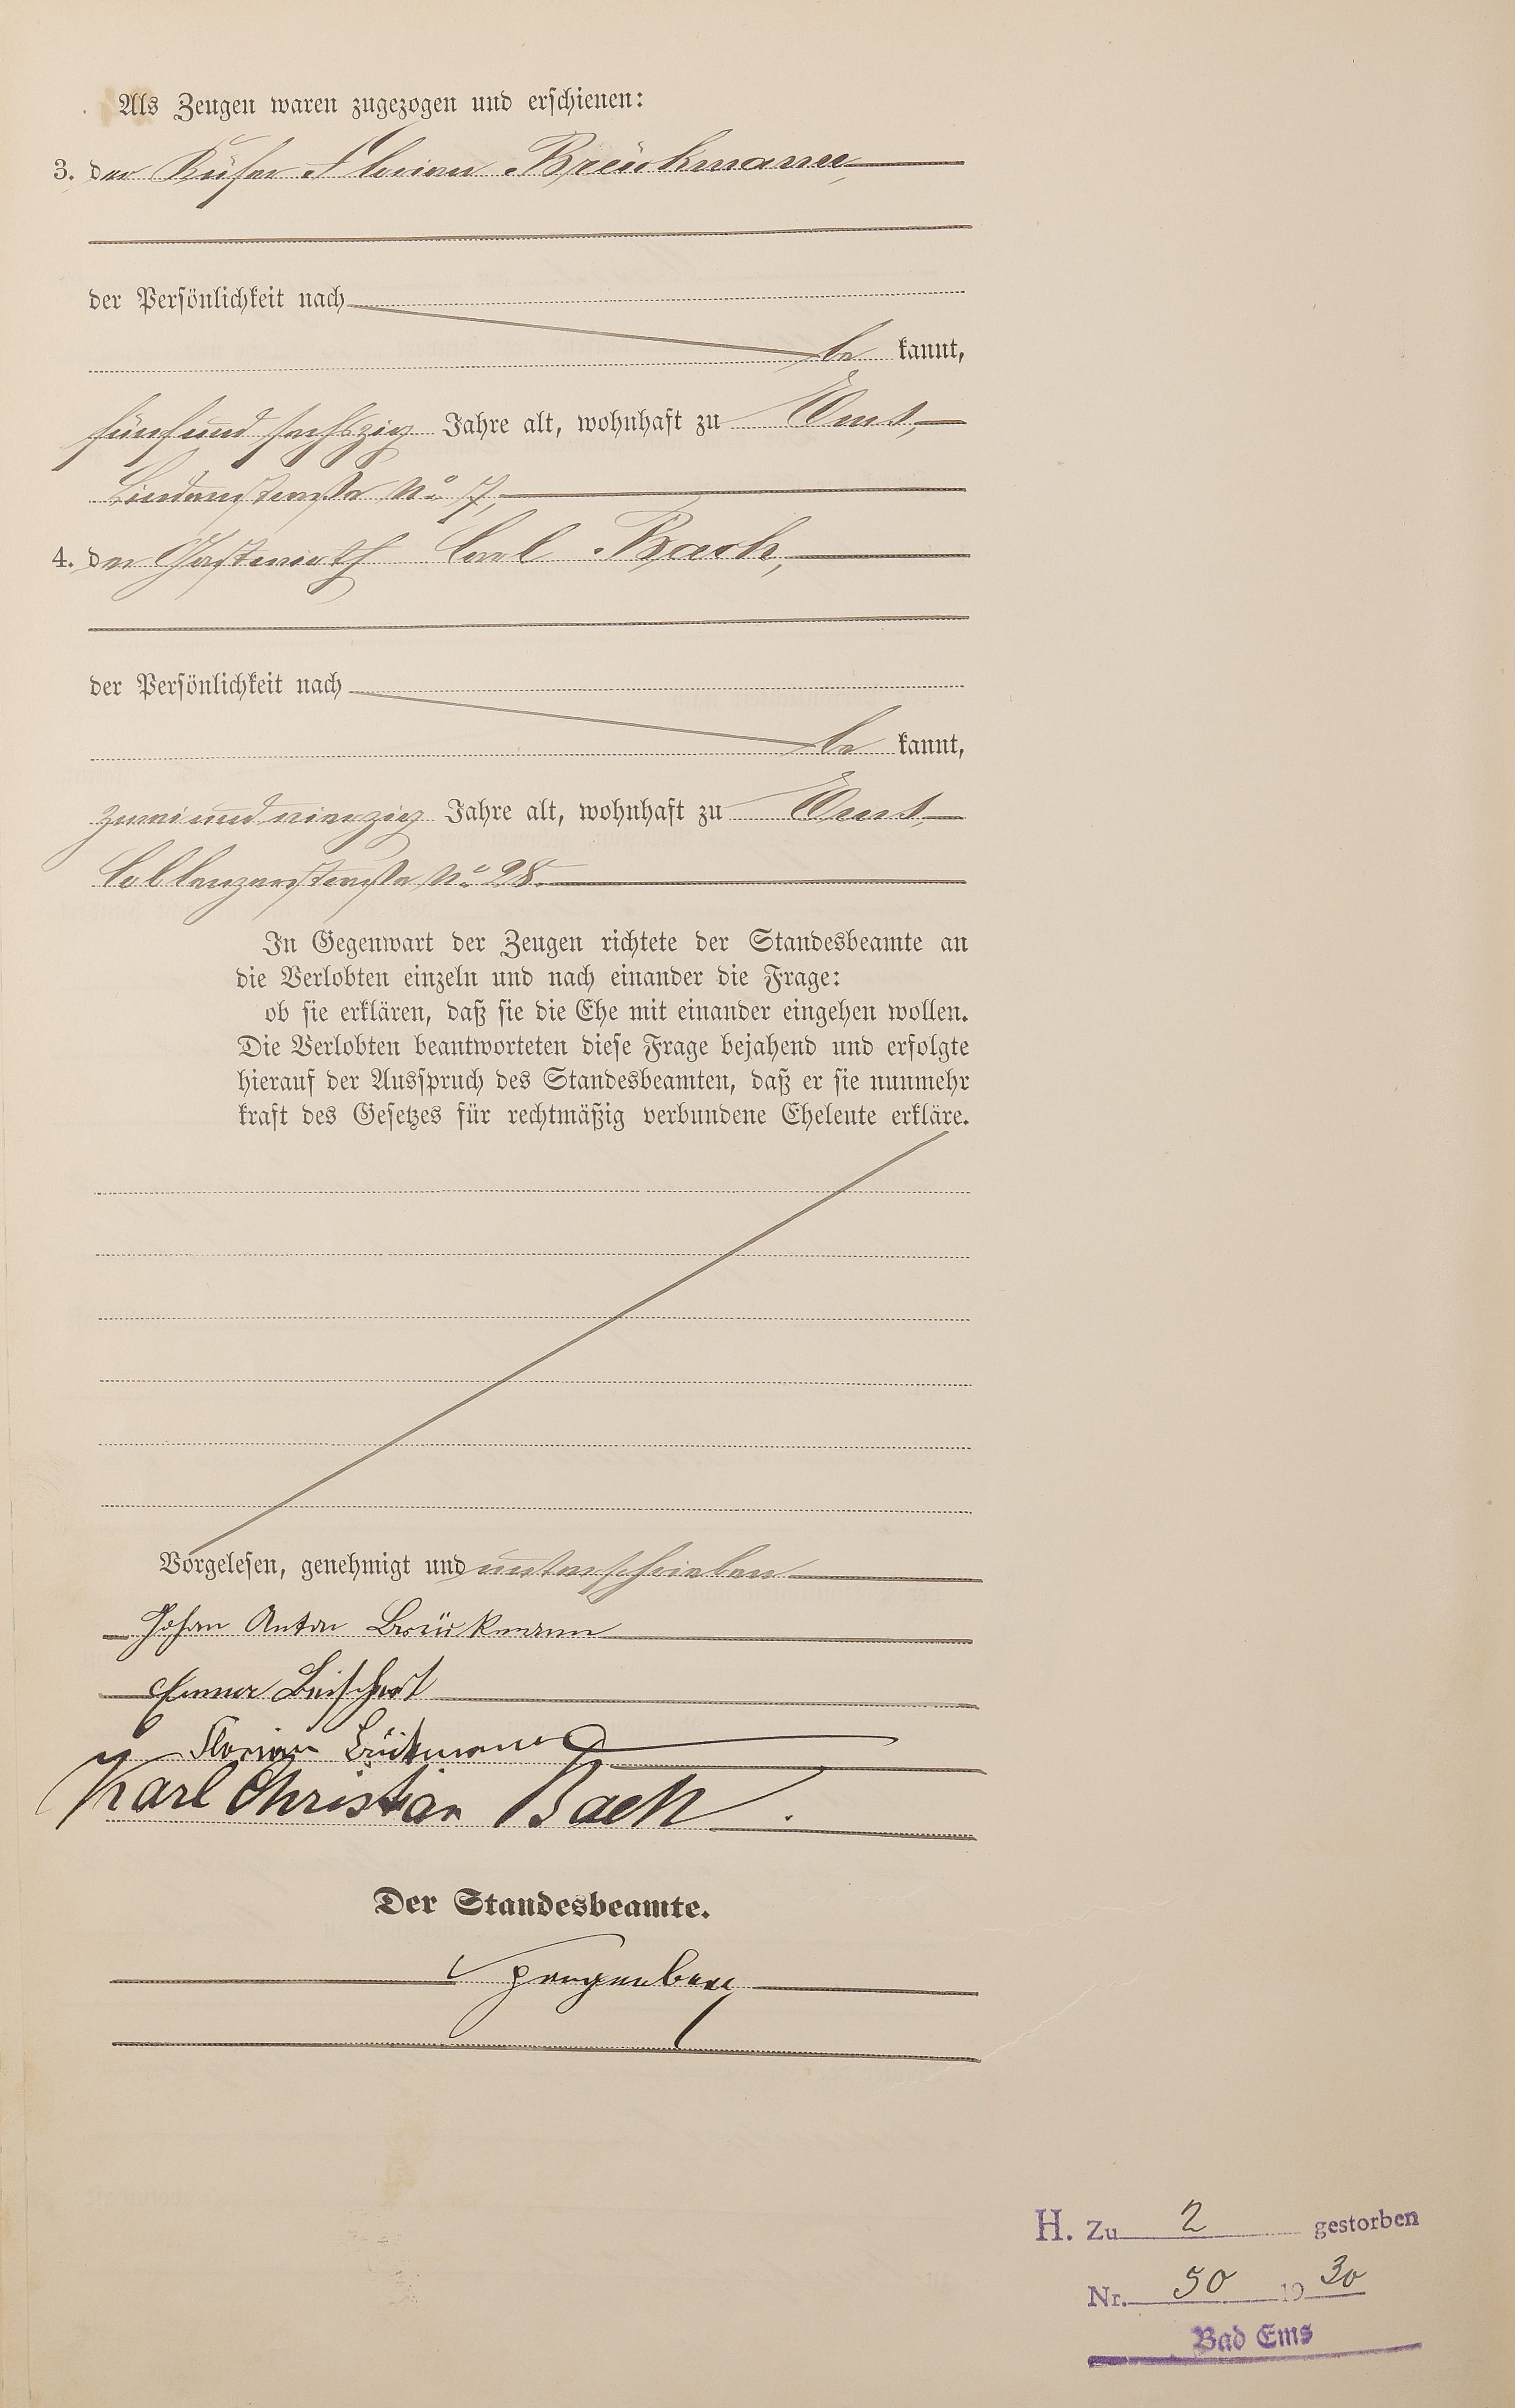 Als Zeugen waren zugezogen und erschienen:
3. der Küfer Florian Breükmann,
der Persönlichkeit nach
be kannt,
fünfundsechszig Jahre alt, wohnhaft zu Ems,
Lindenstraße No 7,
4. der Gastwirth Carl Bach,
der Persönlichkeit nach
be kannt,
zweiundvierzig Jahre alt, wohnhaft zu Ems,
Coblenzerstraße No 28.
In Gegenwart der Zeugen richtete der Standesbeamte an
die Verlobten einzeln und nach einander die Frage:
ob sie erklären, daß sie die Ehe mit einander eingehen wollen.
Die Verlobten beantworteten diese Frage bejahend und erfolgte
hierauf der Ausspruch des Standesbeamten, daß er sie nunmehr
kraft des Gesetzes für rechtmäßig verbundene Eheleute erkläre.
Vorgelesen, genehmigt und unterschrieben
Johan Anton Breükmann
Emma
Florian
Karl Christian Bach.
Der Standesbeamte.
H. Zu 2 gestorben
Nr. 50 1930
Bad Ems